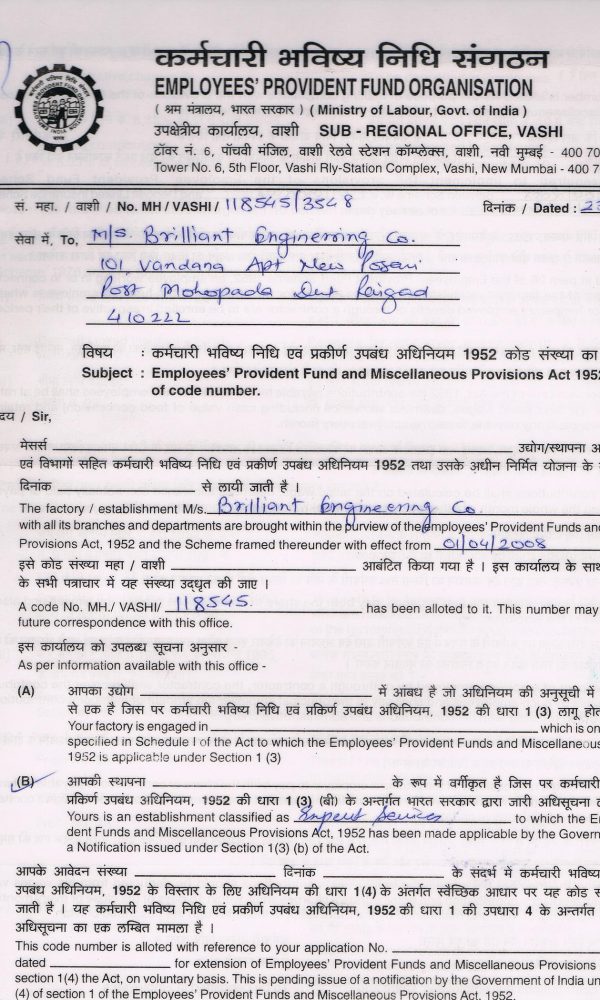 कर्मचारी भविष्य निधि संगठन
EMPLOYEES' PROVIDENT FUND ORGANISATION
( श्रम मंत्रालय, भारत सरकार ) ( Ministry of Labour, Govt. of India )
उपक्षेत्रीय कार्यालय, वाशी SUB - REGIONAL OFFICE, VASHI
टॉवर नं. 6, पाँचवी मंजिल, वाशी रेलवे स्टेशन कॉम्प्लेक्स, वाशी, नवी मुम्बई - 400 70
Tower No. 6, 5th Floor, Vashi Rly-Station Complex, Vashi, New Mumbai - 400 7
सं. महा. / वाशी / No. MH / VASHI / 118545/3548 दिनांक / Dated : 23
सेवा में, To, M/s. Brilliant Engineering Co.
101, Vandana Apt New Posari
Post Mohopada Dist Raigad
410222
विषय : कर्मचारी भविष्य निधि एवं प्रकीर्ण उपबंध अधिनियम 1952 कोड संख्या का
Subject : Employees' Provident Fund and Miscellaneous Provisions Act 1952
of code number.
दय / Sir,
मेसर्स उद्योग/स्थापना अ
एवं विभागों सहित कर्मचारी भविष्य निधि एवं प्रकीर्ण उपबंध अधिनियम 1952 तथा उसके अधीन निर्मित योजना के
दिनांक से लायी जाती है ।
The factory / establishment M/s. Brilliant Engineering Co.
with all its branches and departments are brought within the purview of the employees' Provident Funds and
Provisions Act, 1952 and the Scheme framed thereunder with effect from 01/04/2008
इसे कोड संख्या महा / वाशी आबंटित किया गया है । इस कार्यालय के साथ
के सभी पत्राचार में यह संख्या उद्धृत की जाए ।
A code No. MH./ VASHI/ 118545. has been alloted to it. This number may
future correspondence with this office.
इस कार्यालय को उपलब्ध सूचना अनुसार -
As per information available with this office -
(A) आपका उद्योग में आंबध है जो अधिनियम की अनुसूची में
से एक है जिस पर कर्मचारी भविष्य निधि एवं प्रकिर्ण उपबंध अधिनियम, 1952 की धारा 1 (3) लागू होत
Your factory is engaged in which is on
specified in Schedule I of the Act to which the Employees' Provident Funds and Miscellaneou
1952 is applicable under Section 1 (3)
(B) आपकी स्थापना के रूप में वर्गीकृत है जिस पर कर्मचारी
प्रकिर्ण उपबंध अधिनियम, 1952 की धारा 1 (3) (बी) के अन्तर्गत भारत सरकार द्वारा जारी अधिसूचना
Yours is an establishment classified as to which the Em
dent Funds and Miscellanceous Provisions Act, 1952 has been made applicable by the Govern
a Notification issued under Section 1(3) (b) of the Act.
आपके आवेदन संख्या दिनांक के संदर्भ में कर्मचारी भविष्य
उपबंध अधिनियम, 1952 के विस्तार के लिए अधिनियम की धारा 1(4) के अंतर्गत स्वैच्छिक आधार पर यह कोड स
जाती है । यह कर्मचारी भविष्य निधि एवं प्रकीर्ण उपबंध अधिनियम, 1952 की धारा 1 की उपधारा 4 के अन्तर्गत
अधिसूचना का एक लम्बित मामला है ।
This code number is alloted with reference to your application No.
dated for extension of Employees' Provident Funds and Miscellaneous Provisions
section 1(4) the Act, on voluntary basis. This is pending issue of a notification by the Government of India un
(4) of section 1 of the Employees' Provident Funds and Miscellaneous Provisions Act, 1952.